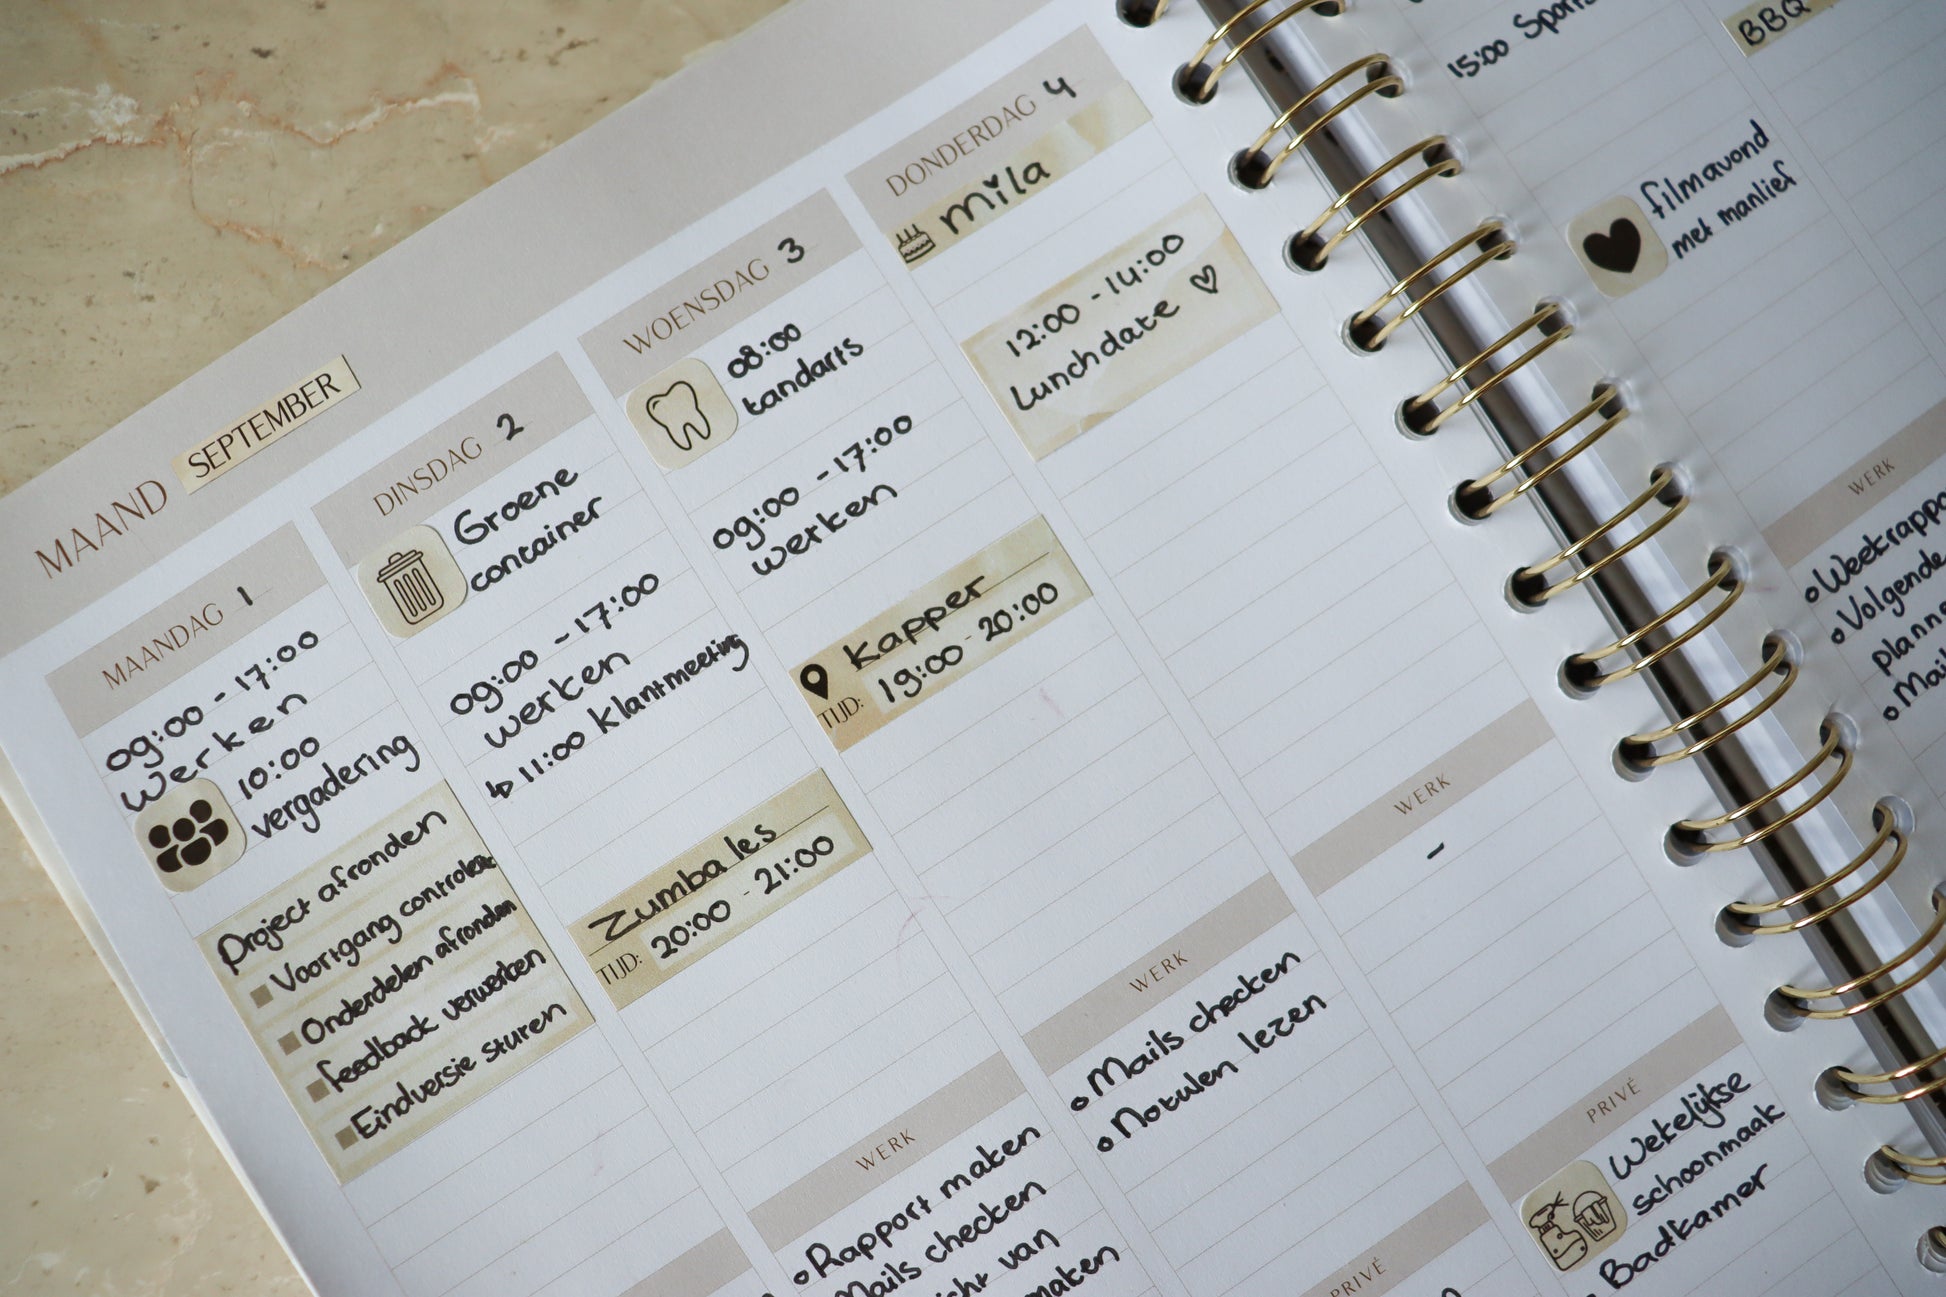 MAAND SEPTEMBER
MAANDAG 1
09:00 - 17:00
Werken
10:00
vergadering
Project afronden
Voortgang controleren
Onderdelen afronden
feedback verwerken
Eindversie sturen
DINSDAG 2
Groene
container
09:00 - 17:00
werken
↳ 11:00 klantmeeting
Zumba les
TIJD: 20:00 - 21:00
WERK
Rapport maken
Mails checken
van
maken
WOENSDAG 3
08:00
tandarts
09:00 - 17:00
werken
Kapper
TIJD: 19:00 - 20:00
WERK
Mails checken
Notulen lezen
PRIVÉ
DONDERDAG 4
mila
12:00 - 14:00
Lunchdate ♡
WERK
-
PRIVÉ
Wekelijkse
schoonmaak
Badkamer
15:00
filmavond
met manlief
BBQ
WERK
Volgende